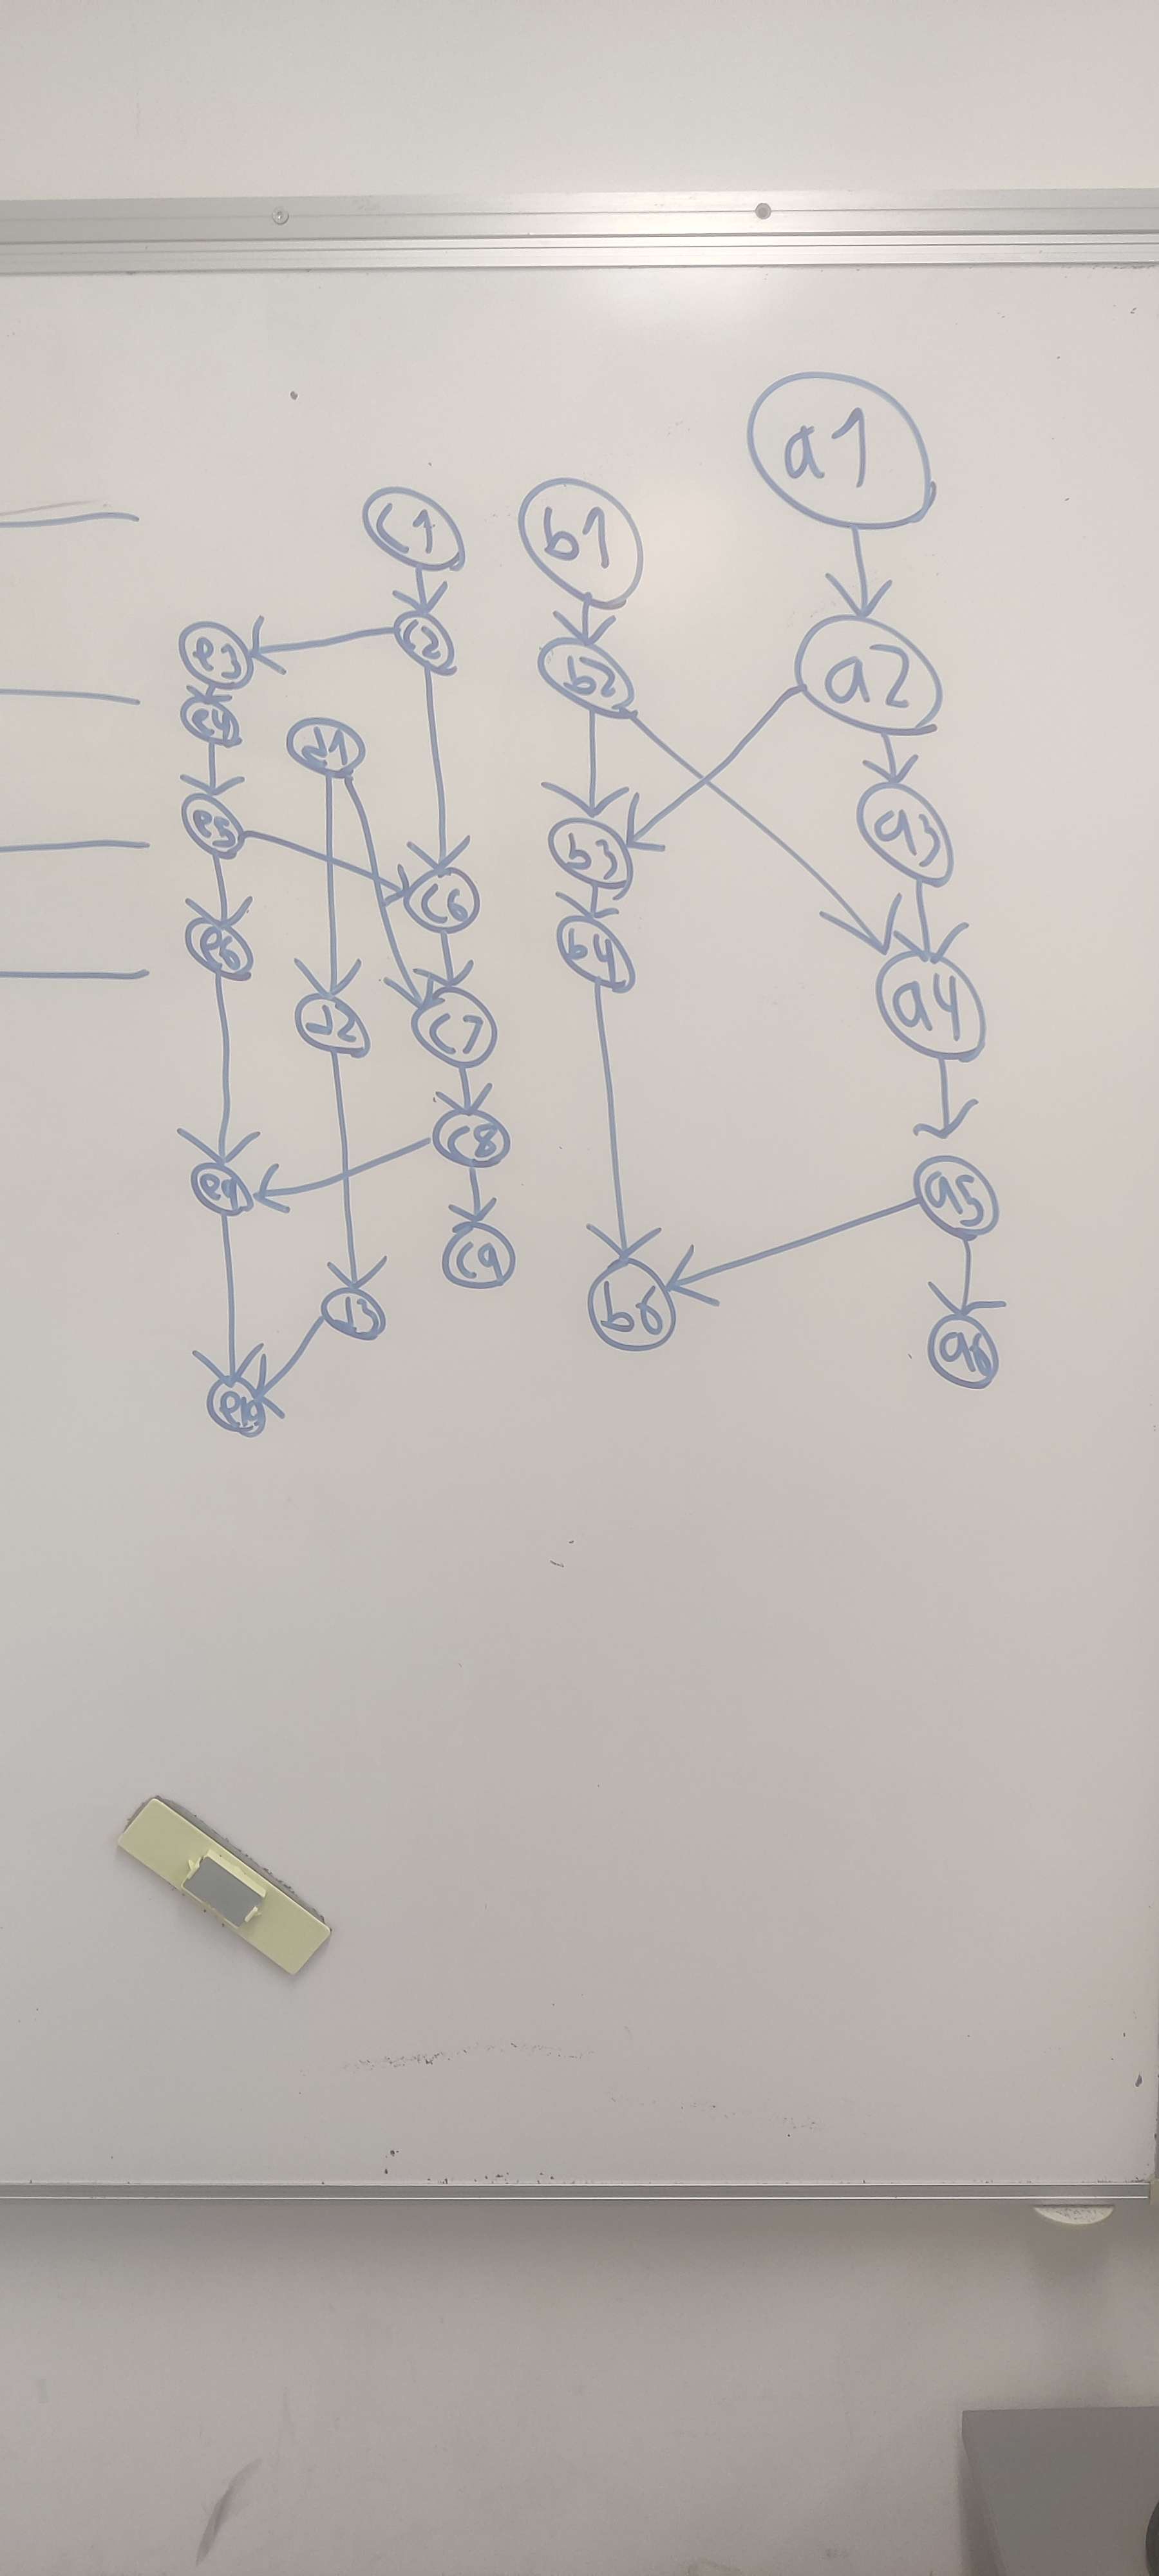 a1
a2
a3
a4
a5
a6
b1
b2
b3
b4
b6
c1
c2
c6
c7
c8
c9
d1
d2
d3
e3
e4
e5
e6
e9
e10